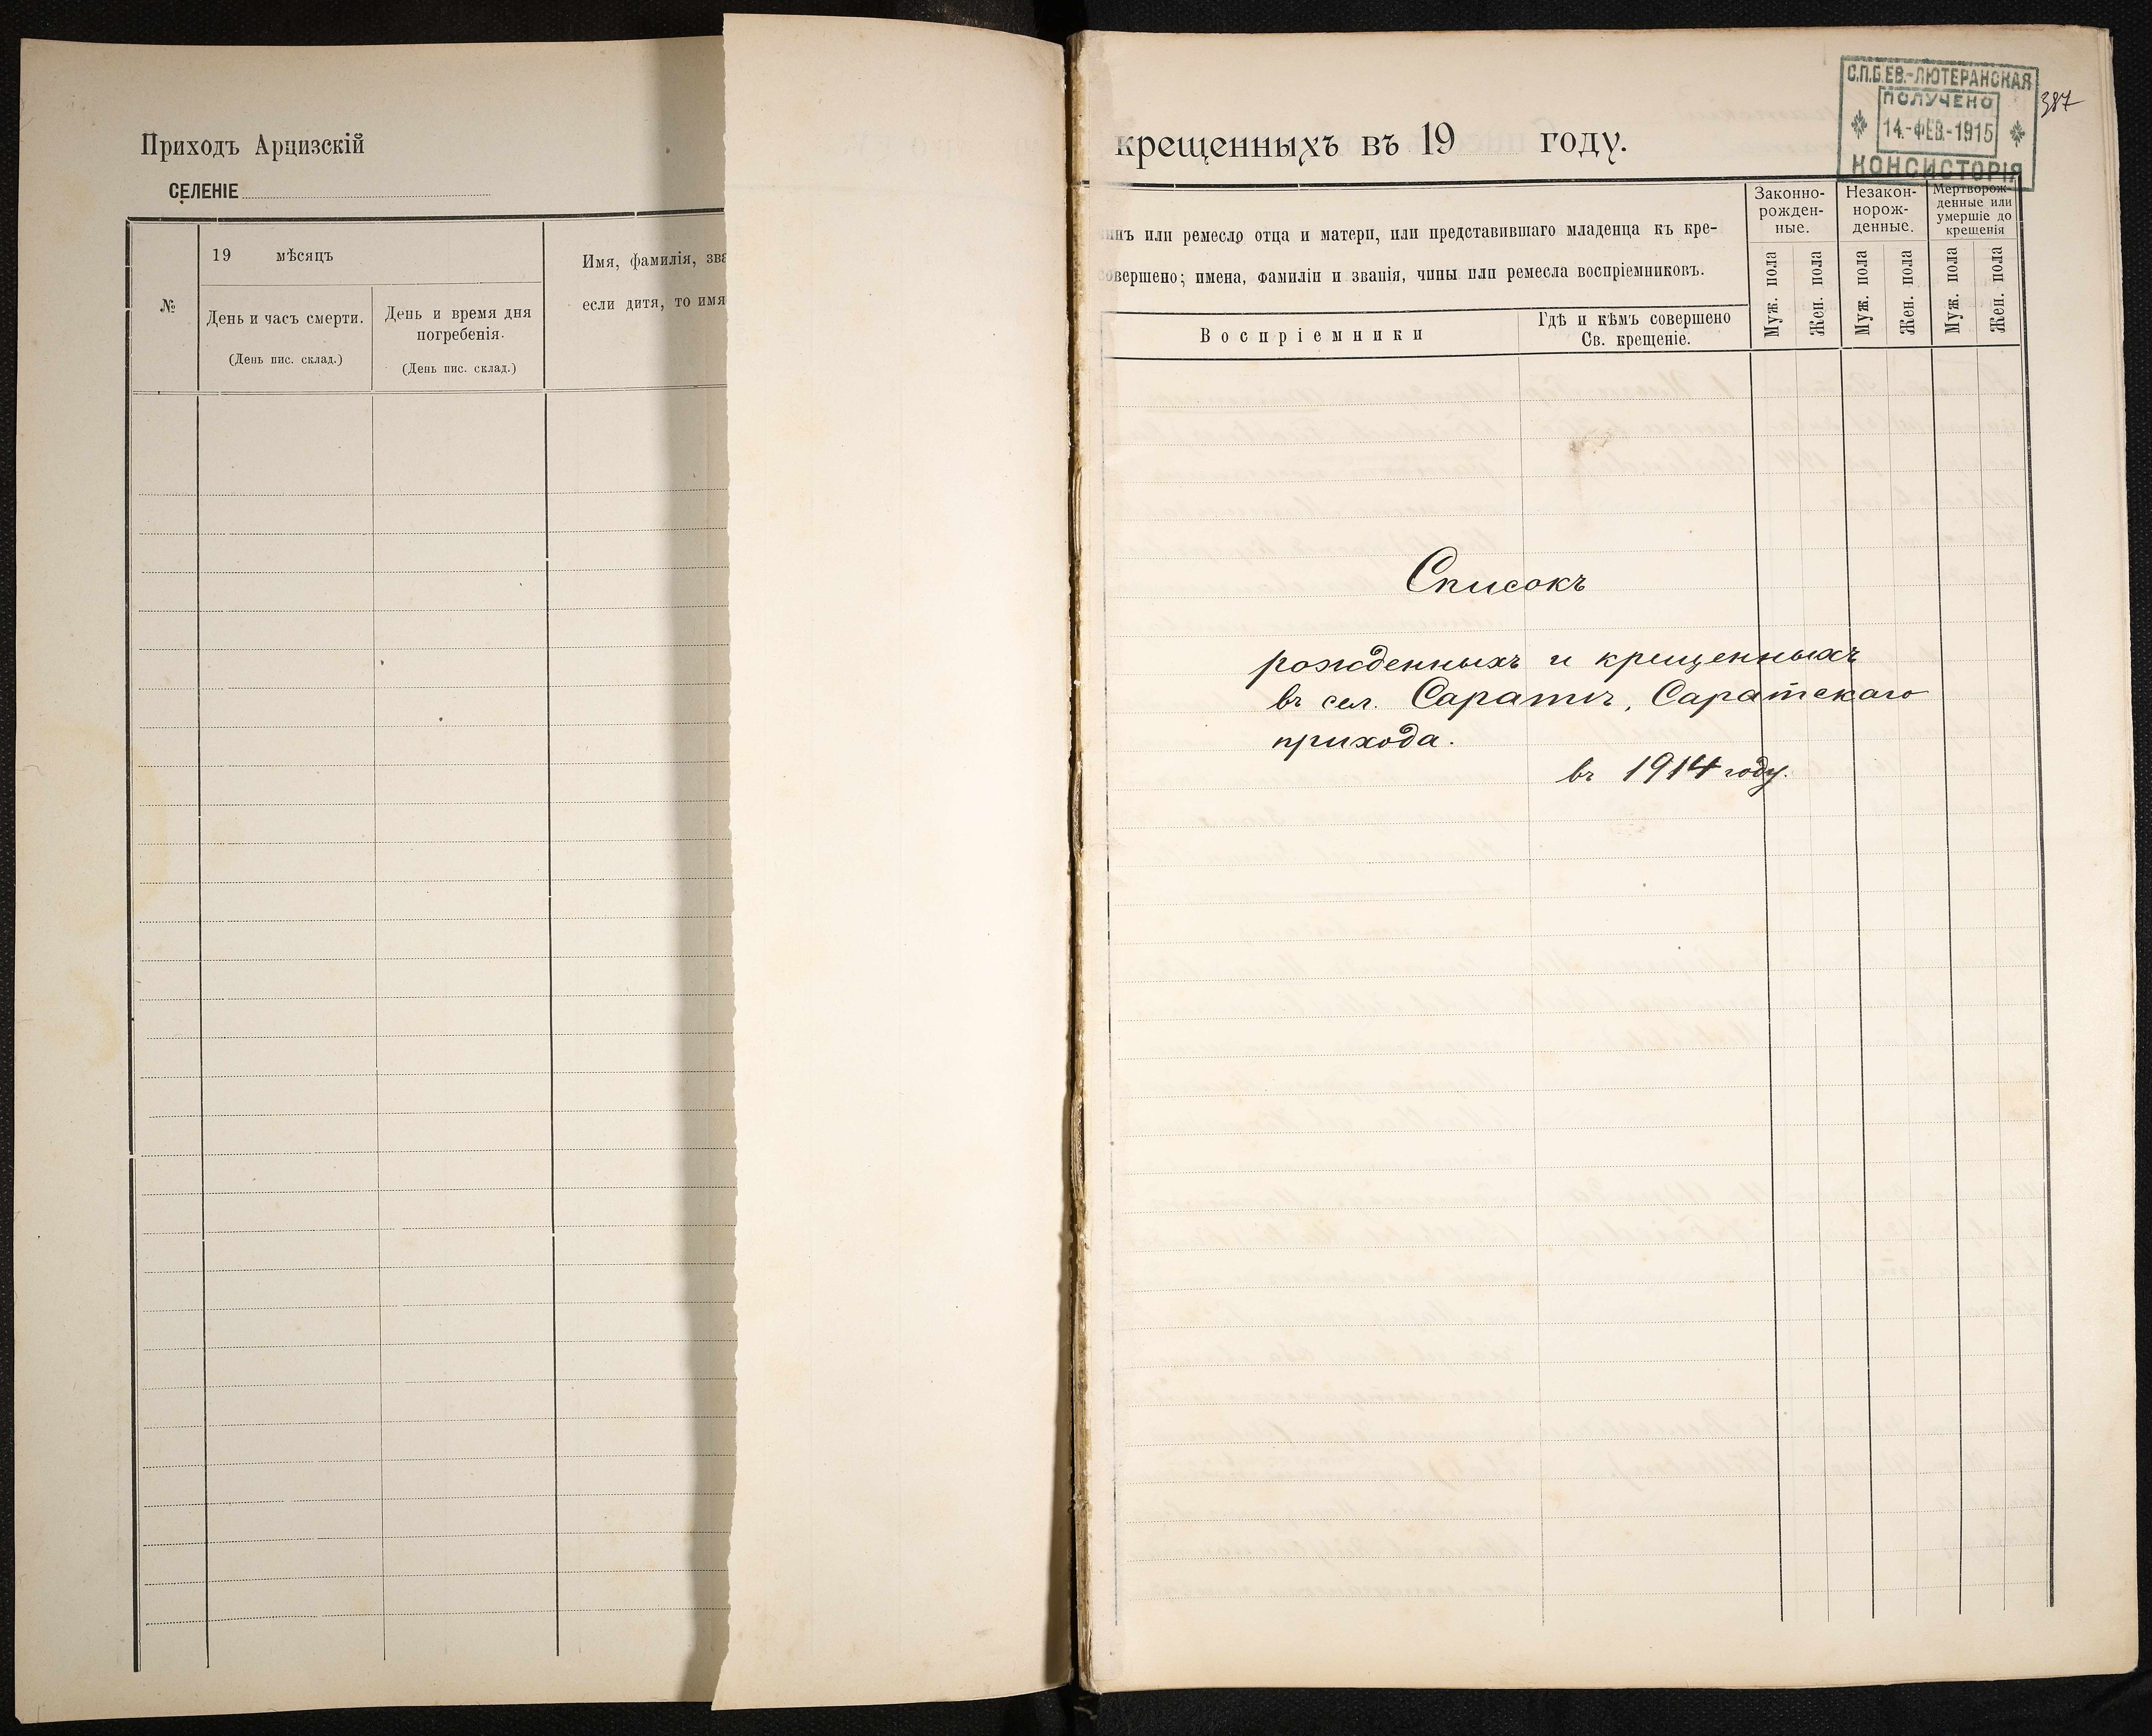 Приходъ Арцизскій
СЕЛЕНІЕ
№
19 мѣсяцъ
День и часъ смерти.
(День пис. склад.)
День и время дня
погребенія.
(День пис. склад.)
Имя, фамилія,
если дитя, то имя
С.П.Б.ЕВ.-ЛЮТЕРАНСКАЯ
ПОЛУЧЕНО
14.-ФЕВ.-1915
КОНСИСТОРІЯ
387
крещенныхъ въ 19 году.
или ремесло отца и матери, или представившаго младенца къ кре-
совершено; имена, фамиліи и званія, чины или ремесла воспріемниковъ.
Воспріемники
Гдѣ и кѣмъ совершено
Св. крещеніе.
Законно-
рожден-
ные.
Незакон-
норож-
денные.
Мертворож-
денные или
умершіе до
крещенія
Муж. пола
Жен. пола
Муж. пола
Жен. пола
Муж. пола
Жен. пола
Списокъ
рожденныхъ и крещенныхъ
въ сел. Саратѣ, Саратскаго
прихода.
въ 1914 году.